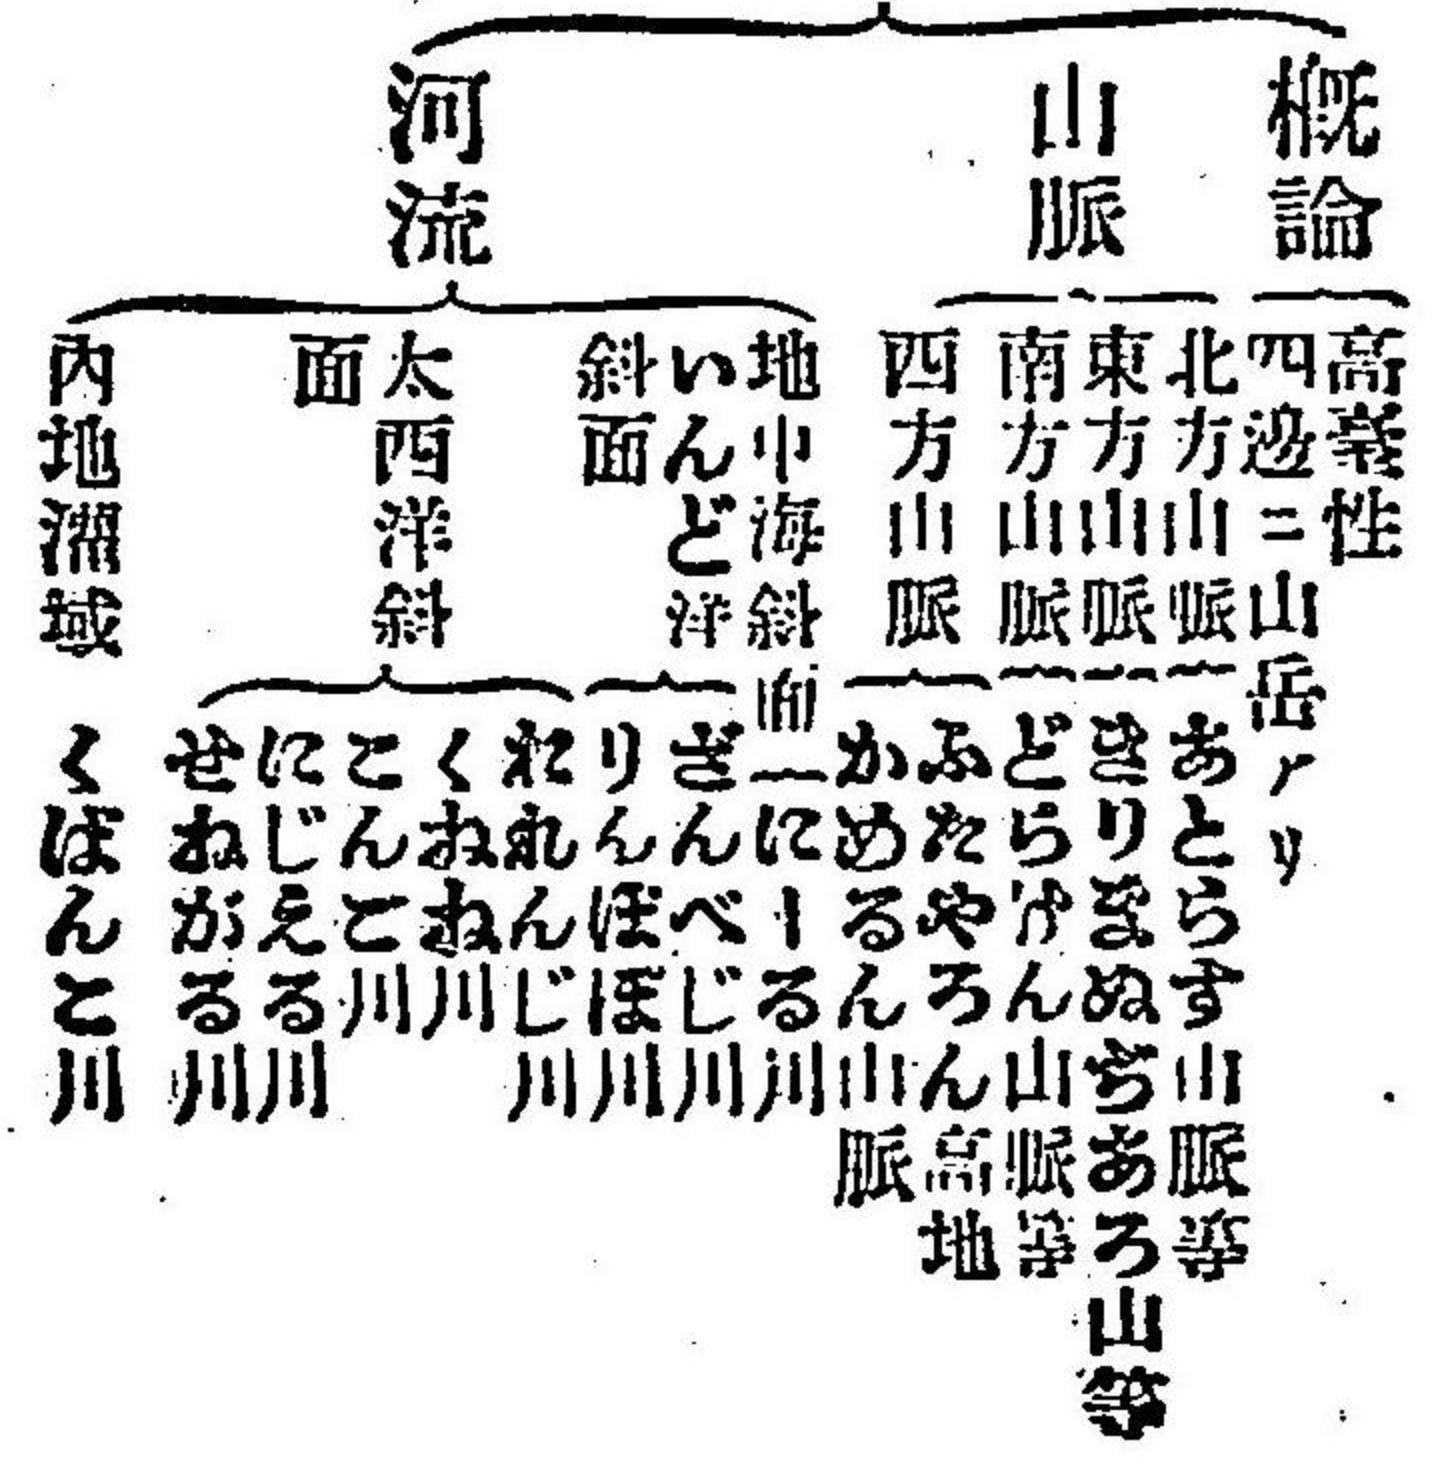 概論
高臺性
四邊ニ山岳アリ
山脈
北方山脈
あとらす山脈等
東方山脈
きりまぬぢあろ山等
南方山脈
どらけん山脈等
西方山脈
ふたやろん高地
かめるん山脈
河流
地中海斜面
にーる川
いんど洋
斜面
ざんべじ川
りんぽぽ川
太西洋斜
面
れんじ川
くねね川
こんこ川
にじえる川
せねがる川
內地溜域
くばんこ川